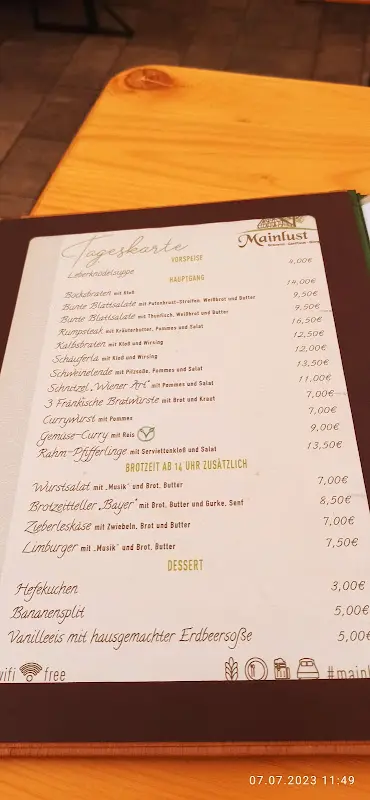 Tageskarte
Mainlust
VORSPEISE
Leberknödelsuppe 4,00€
HAUPTGANG
Bocksbraten mit Kloß 14,00€
Bunte Blattsalate mit Putenbrust-Streifen, Weißbrot und Butter 9,50€
Bunte Blattsalate mit Thunfisch, Weißbrot und Butter 9,50€
Rumpsteak mit Kräuterbutter, Pommes und Salat 16,50€
Kalbsbraten mit Kloß und Wirsing 12,50€
Schäuferla mit Kloß und Wirsing 12,00€
Schweinelende mit Pilzsoße, Pommes und Salat 13,50€
Schnitzel „Wiener Art" mit Pommes und Salat 11,00€
3 Fränkische Bratwürste mit Brot und Kraut 7,00€
Currywurst mit Pommes 7,00€
Gemüse-Curry mit Reis 9,00€
Rahm-Pfifferlinge mit Serviettenkloß und Salat 13,50€
BROTZEIT AB 14 UHR ZUSÄTZLICH
Wurstsalat mit „Musik" und Brot, Butter 7,00€
Brotzeitteller „Bayer" mit Brot, Butter und Gurke, Senf 8,50€
Zieberleskäse mit Zwiebeln, Brot und Butter 7,00€
Limburger mit „Musik" und Brot, Butter 7,50€
DESSERT
Hefekuchen 3,00€
Bananensplit 5,00€
Vanilleeis mit hausgemachter Erdbeersoße 5,00€
wifi free #mainl
07.07.2023 11:49